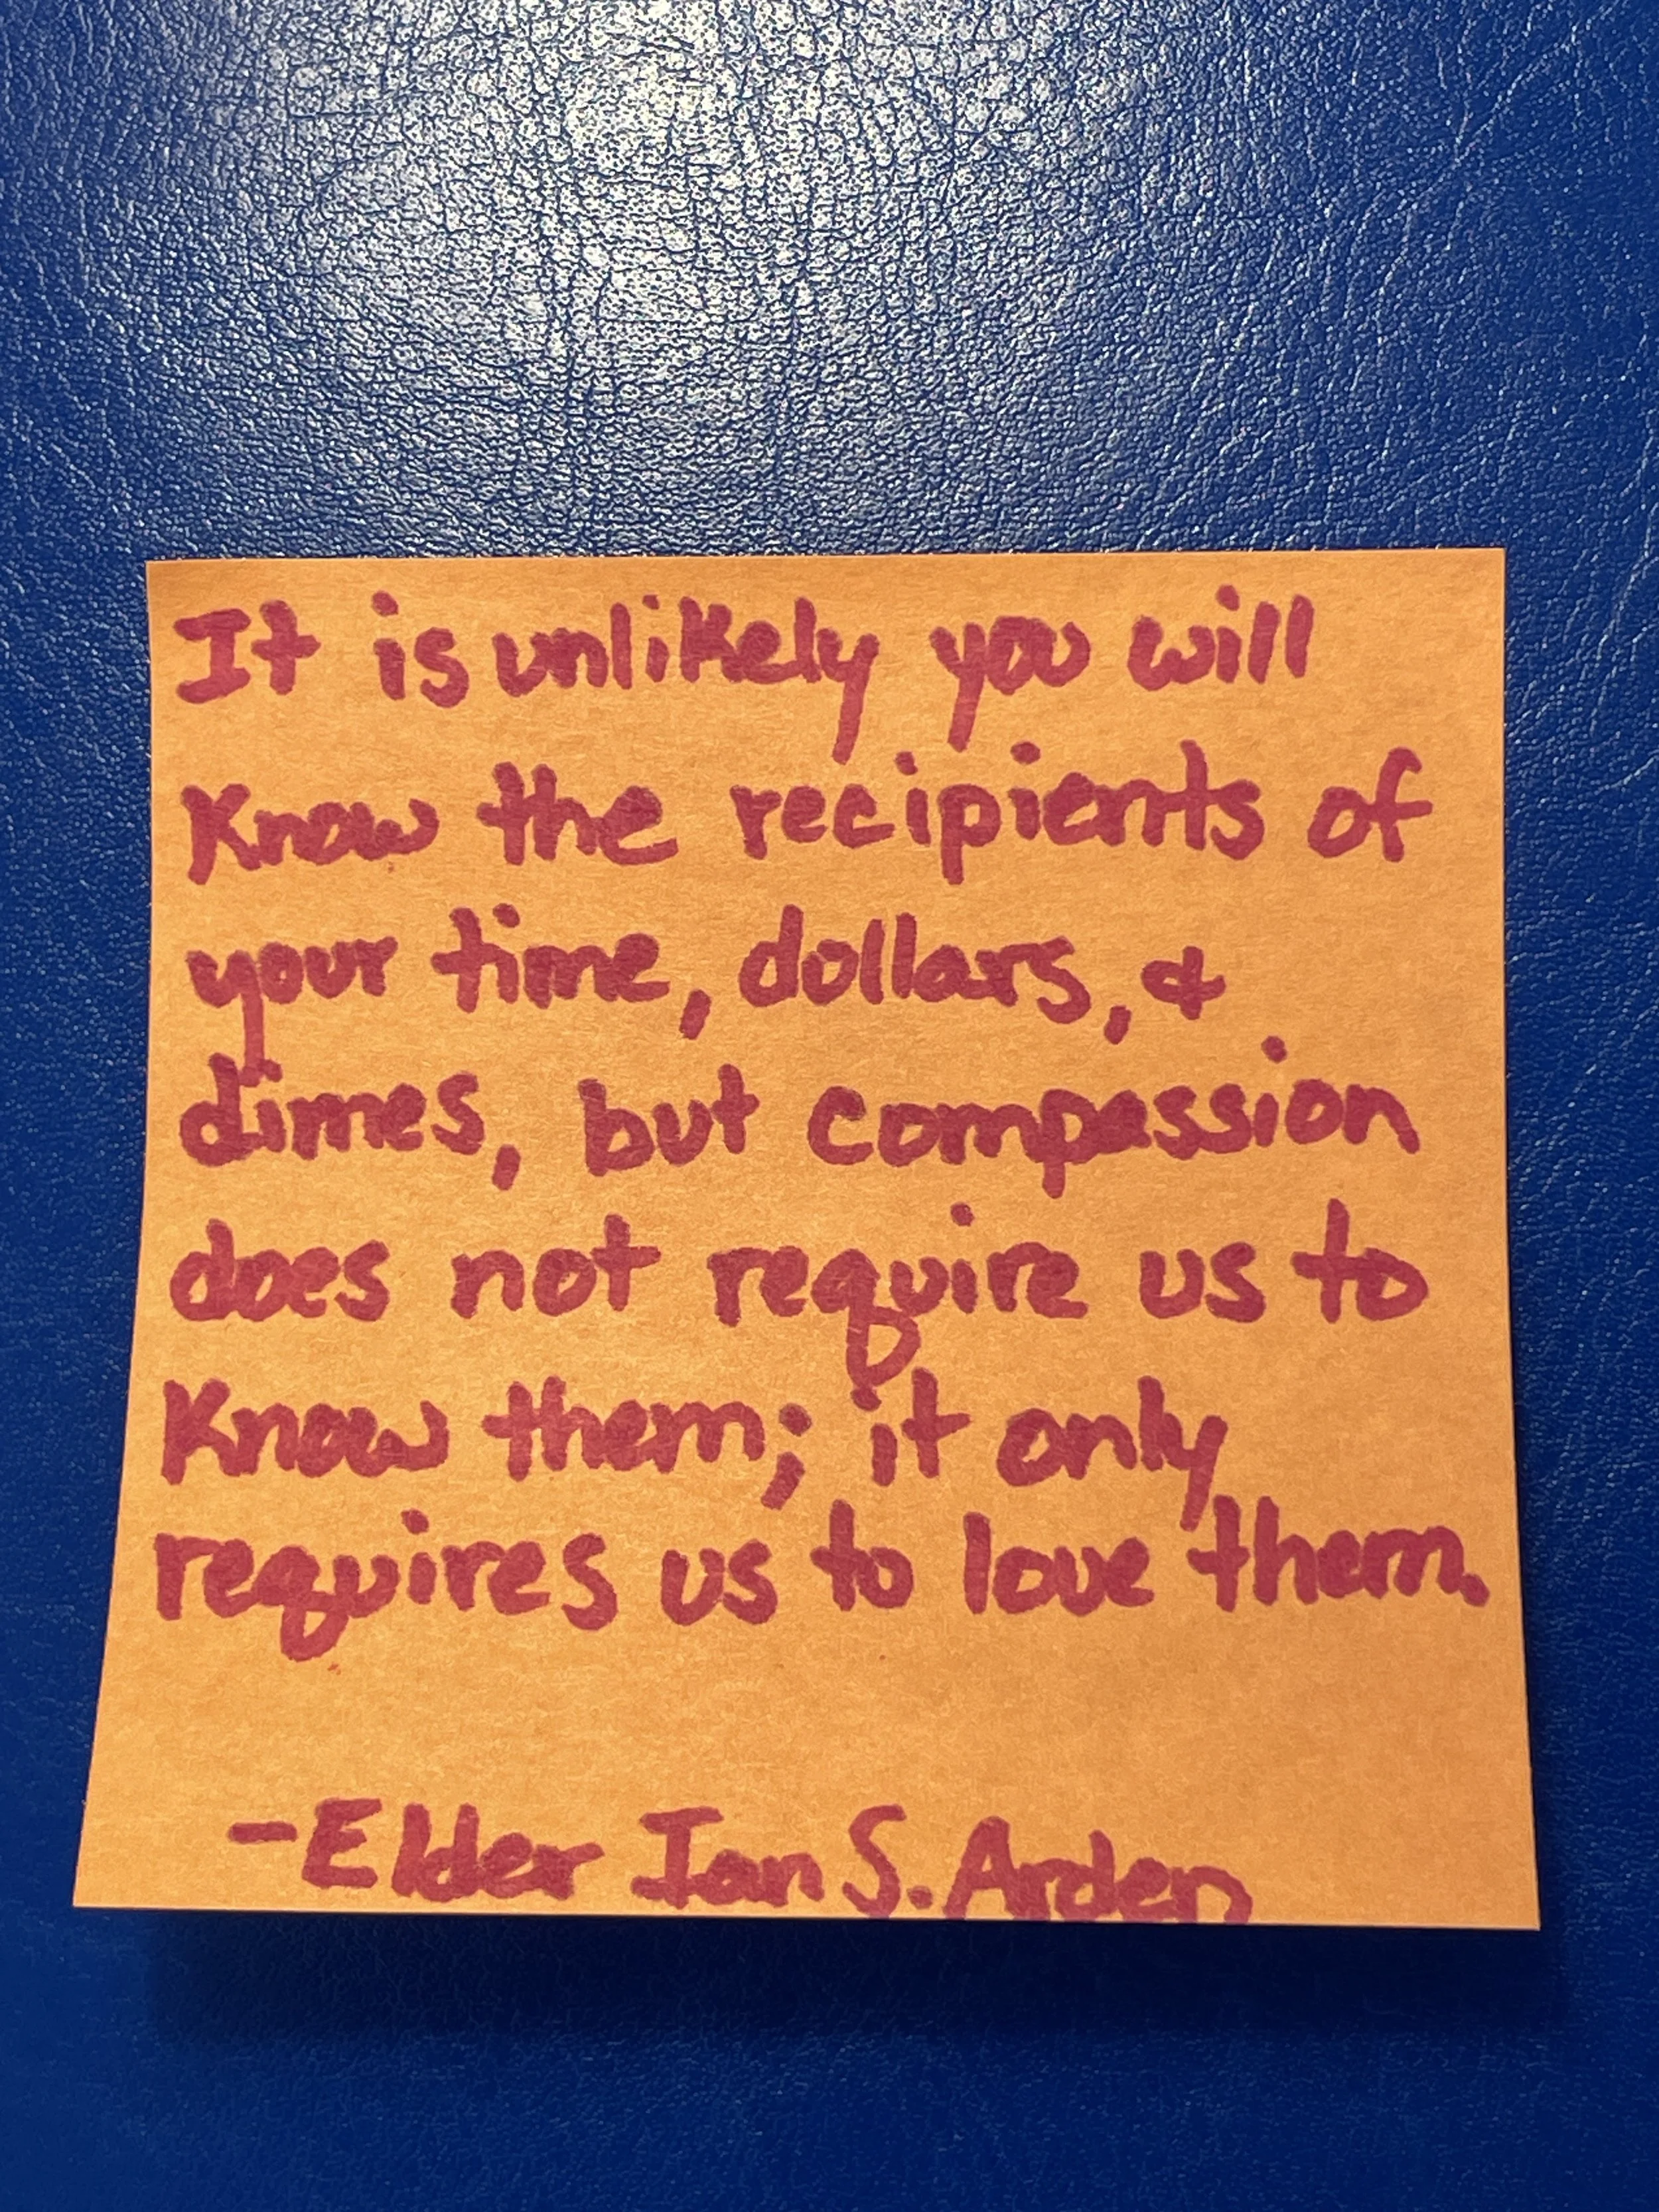 It is unlikely you will
Know the recipients of
your time, dollars, &
dimes, but compassion
does not require us to
Know them; it only
requires us to love them.
-Elder Ian S. Arden